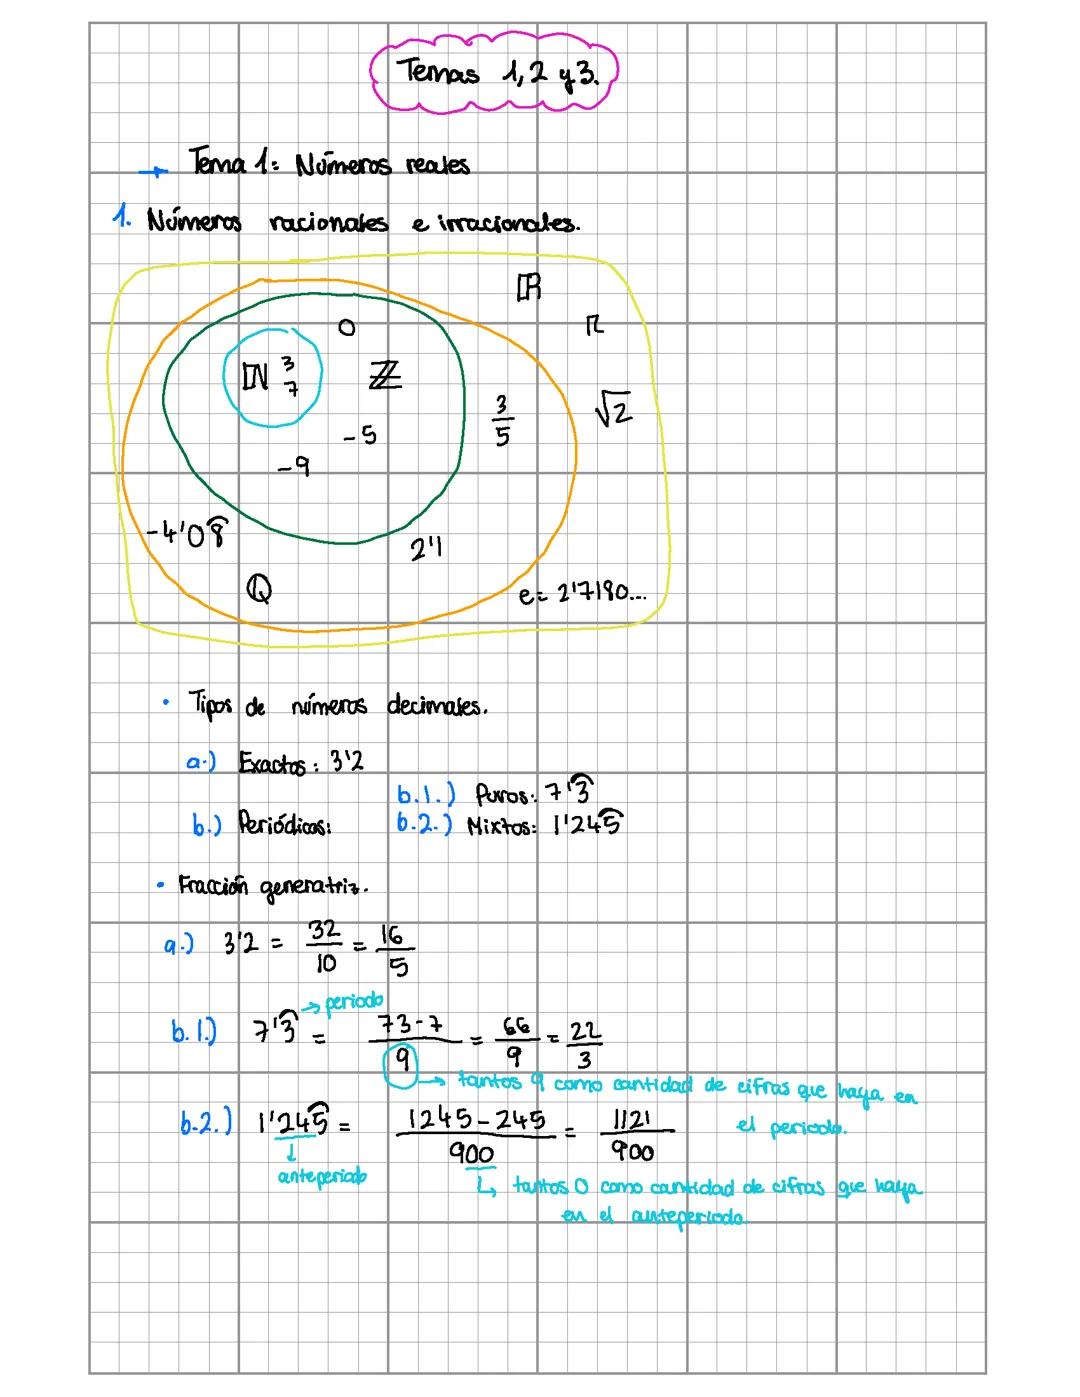 Temas 1, 2 y 3.
→ Tema 1: Números reales
1. Números racionales e irracionales.
ℝ
π
0
ℕ 3
7
ℤ
3/5
√2
-5
-9
-4'08̂
2'1
ℚ
e = 2'7180...
• Tipos de números decimales.
a.) Exactos: 3'2
b.) Periódicos:
b.1.) Puros: 7'3̂
b.2.) Mixtos: 1'245̂
• Fracción generatriz.
a.) 3'2 = 32/10 = 16/5
→ periodo
b.1.) 7'3̂ = 73-7/9 = 66/9 = 22/3
→ tantos 9 como cantidad de cifras que haya en
el periodo.
b.2.) 1'245̂ = 1245-245/900 = 1121/900
↓
anteperiodo
↳ tantos 0 como cantidad de cifras que haya
en el anteperiodo.